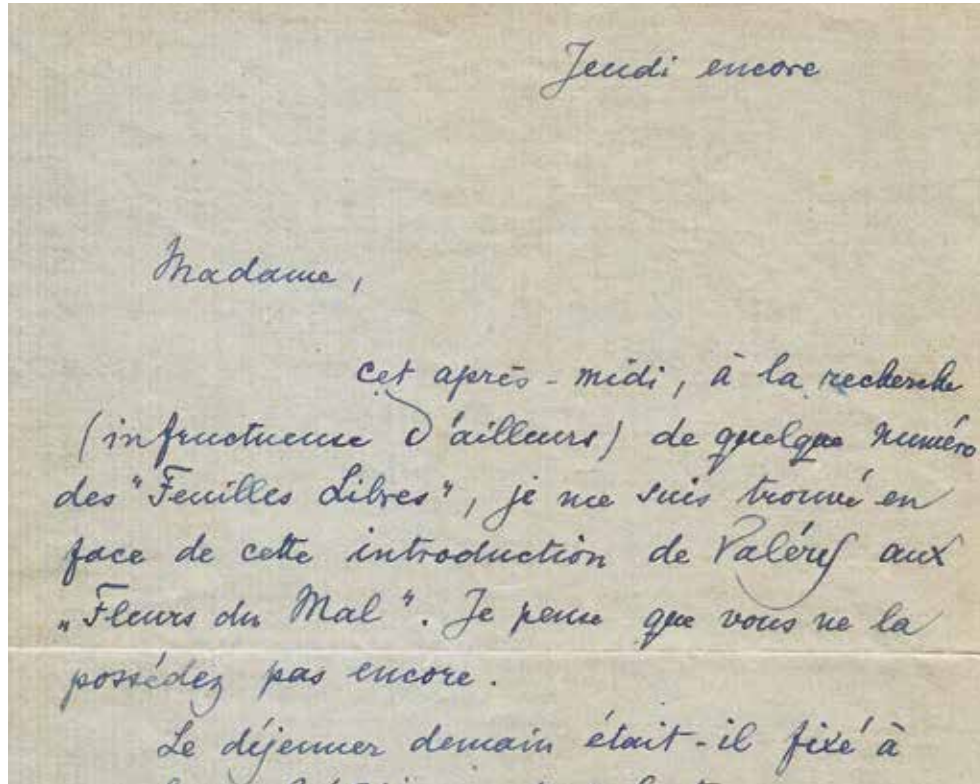 Jeudi encore
Madame,
cet après-midi, à la recherche
(infructueuse d'ailleurs) de quelque numéro
des "Feuilles Libres", je me suis trouvé en
face de cette introduction de Valéry aux
"Fleurs du Mal". Je pense que vous ne la
possédez pas encore.
Le déjeuner demain était-il fixé à